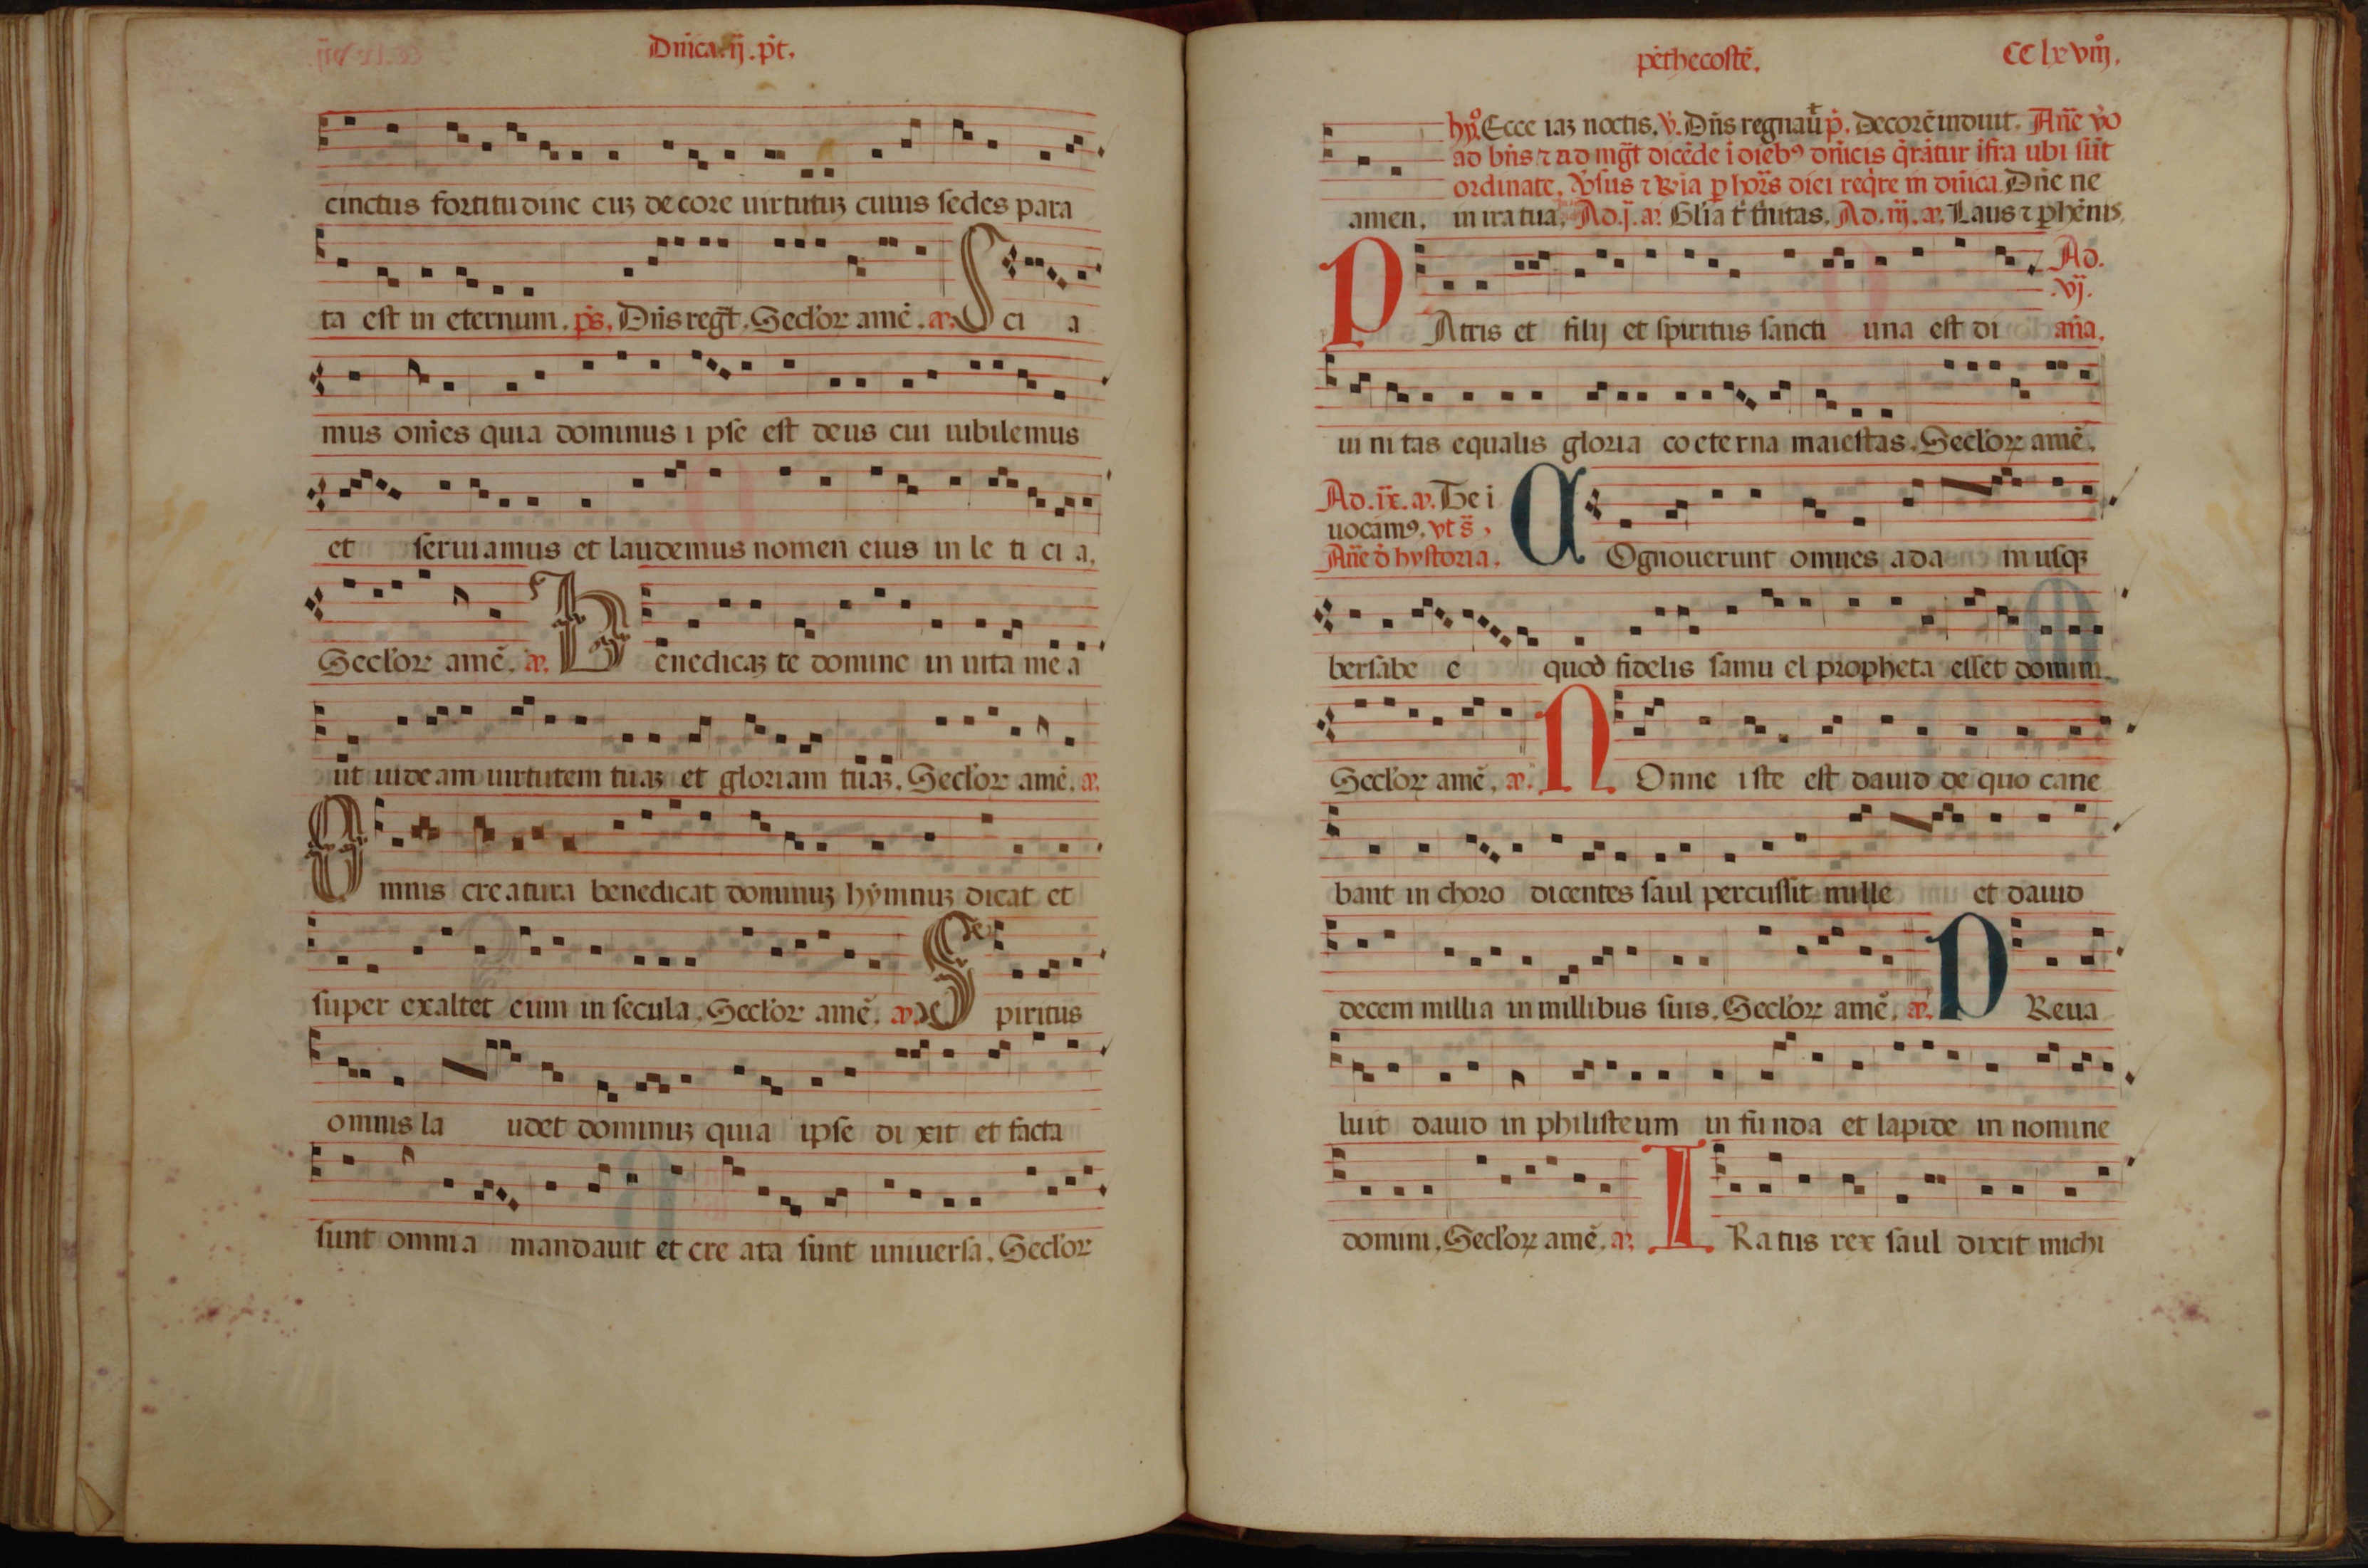 Dn̄ica.ij.p̄t.
cinctus fortitudine cuȝ decore uirtutuȝ cuius sedes para
ta est in eternum. p̄s. Dn̄s reḡt. Secl'oꝝ amē. a. Sci a
mus om̄es quia dominus ipse est deus cui iubilemus
et seruiamus et laudemus nomen eius in le ti ci a.
Secl'oꝝ amē. a. Benedicaȝ te domine in uita mea
ut uideam uirtutem tuaȝ et gloriam tuaȝ. Secl'oꝝ amē. a.
Omnis creatura benedicat dominuȝ hẏmnuȝ dicat et
super exaltet eum in secula. Secl'oꝝ amē. a. Spiritus
omnis la udet dominuȝ quia ipse di xit et facta
sunt omnia mandauit et cre ata sunt uniuersa. Secl'oꝝ
pēthecostē.
CC lxviiij.
hẏ. Ecce iaȝ noctis. v. Dn̄s regnauit. p̄. Decorē induit. An̄e v̊o
ad bn̄s ⁊ ad mḡt dicēde ī dieb⁹ dn̄icis q̄rātur īfra ubi sūt
ordinate. v̊sus ⁊ ꝶia p hor̄s diei req̄re in dn̄ica. Dn̄e ne
amen. in ira tua. Ad.j. a. Gl'ia t' t'nitas. Ad.iij. a. Laus ⁊ phēnis.
PAtris et filij et spiritus sancti una est di
Ad.
vj.
an̄a.
ui ni tas equalis gloria co eterna maiestas. Secl'oꝝ amē.
Ad.ix. a. Te i
uocam⁹. vt s̄.
An̄e d̄ hystoria.
COgnouerunt omnes a da m usqȝ
bersabe e quod fidelis samu el propheta esset domini.
Secl'oꝝ amē. a. NOnne iste est dauid de quo cane
bant in choro dicentes saul percussit mille et dauid
decem millia in millibus suis. Secl'oꝝ amē. a. PReua
luit dauid in philisteum in funda et lapide in nomine
domini. Secl'oꝝ amē. a. IRatus rex saul dixit michi